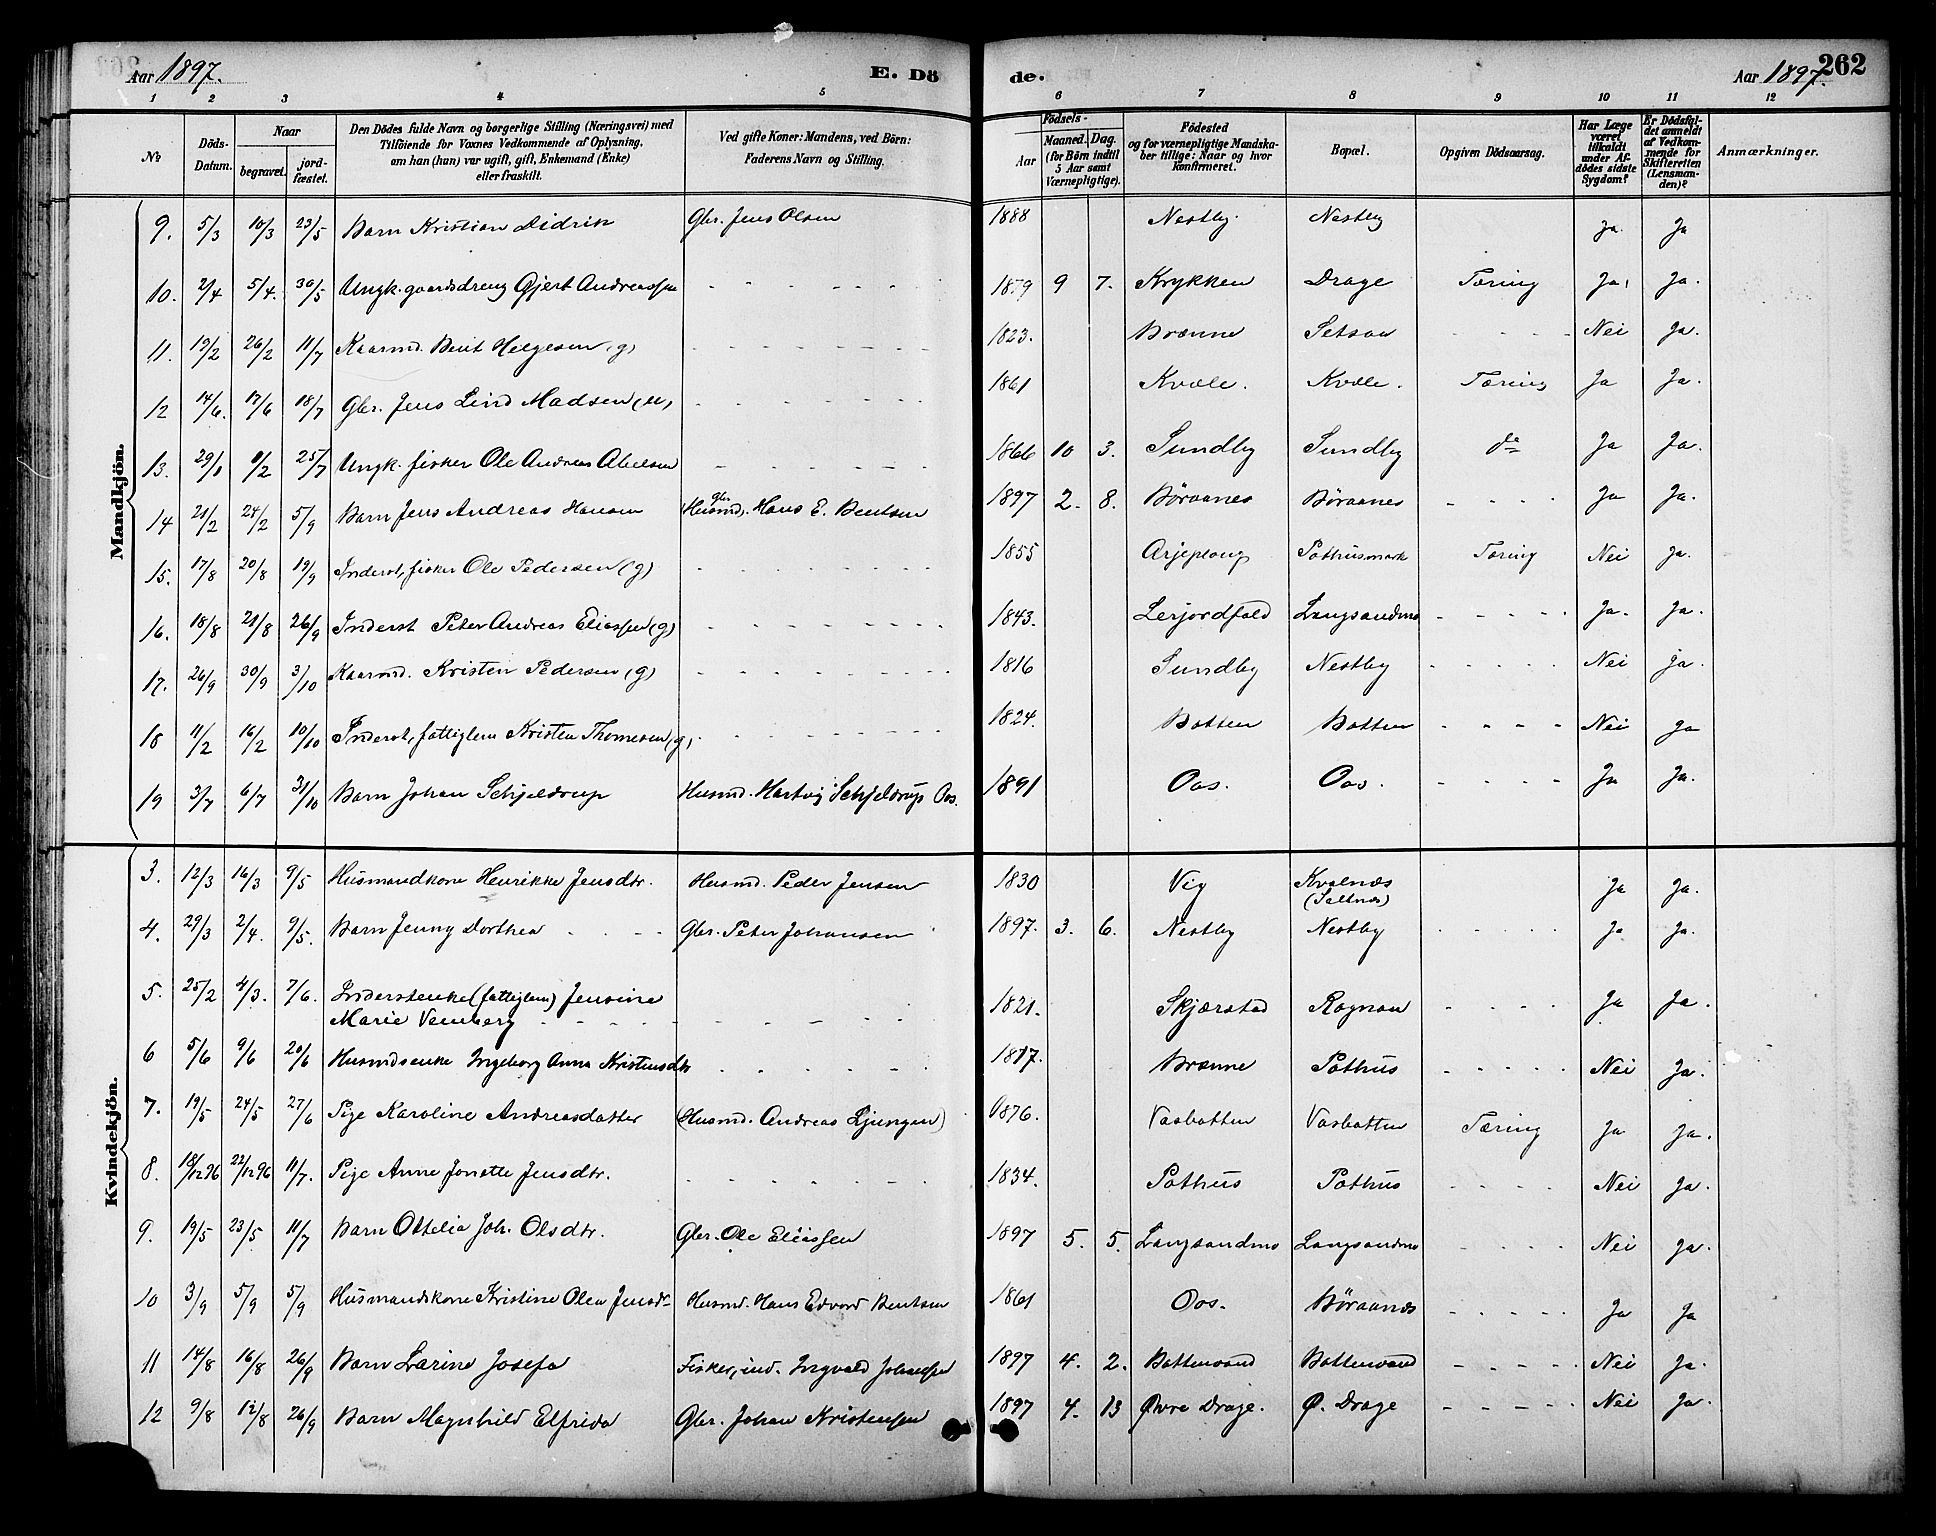 Aar 1897. E. Dö de. Aar 1897. 262
1 2 3 4 5 6 7 8 9 10 11 12
No
Döds-Datum.
Naar
begravet.
jord-fæstet.
Den Dödes fulde Navn og borgerlige Stilling (Næringsvei) med
Tilföiende for Voxnes Vedkommende af Oplysning,
om han (hun) var ugift, gift, Enkemand (Enke)
eller fraskilt.
Ved gifte Koner: Mandens, ved Börn:
Faderens Navn og Stilling.
Födsels-
Aar
Maaned. Dag.
(for Börn indtil
5 Aar samt
Værnepligtige).
Födested
og for værnepligtige Mandska-
ber tillige: Naar og hvor
konfirmeret.
Bopæl.
Opgiven Dödsaarsag.
Har Læge
været
tilkaldt
under Af-
dödes sidste
Sygdom?
Er Dödsfal-
det anmeldt
af Vedkom-
mende for
Skifteretten
(Lensman-
den)?
Anmærkninger.
Mandkjön.
9. 5/3 10/3 23/5 Barn Kristian Didrik Gbr. Jens Olsen 1888 Nestby. Nestby Ja. Ja
10. 2/4 5/4. 30/5 Ungk. gaardsdreng Gjert Andreassen 1879 9 7. Krykken Drage Tæring Ja, Ja.
11. 19/2 26/2 11/7 Kaarmd. Bent Helgesen (g) 1823. Brænne Setsaa Nei Ja.
12 14/6. 17/6 18/7 Gbr. Jens Lind Madsen (u) 1861 Kvæle. Kvæle. Tæring Ja Ja.
13. 29/1 1/2 25/7 Ungk. fisker Ole Andreas Abelsen 1866 10 3. Sundby Sundby do Ja Ja.
14 21/2 24/2 5/9 Barn Jens Andreas Hansen gbr. (Husmd). Hans E. Bentsen 1897 2. 8. Böraanes Böraanes Ja Ja.
15. 17/8 20/8 19/9 Inderst, fisker Ole Pedersen (g) 1855 Arjeploug Pothusmark Tæring Nei Ja.
16. 18/8 21/8 26/9 Inderst Peter Andreas Eliassen (g) 1843. Lerjordfald Langsandmo Ja. Ja.
17. 26/9 30/9 3/10 Kaarmd. Kristen Pedersen (g) 1816 Sundby Nestby Nei ja.
18 11/2 16/2 10/10 Inderst, fattiglem Kristen Thomesen (g) 1824. Botten Botten Nei ja
19 3/7 6/7 31/10 Barn Johan Schjeldrup Husmd. Hartvig Schjeldrup Oos. 1891 Oos. Oos. Ja Ja.
Kvindekjön.
3. 12/3 16/3 9/5 Husmandkone Henrikke Jensdtr. Husmd. Peder Jensen 1830 Vig Kvalnæs (Saltnæs) Ja Ja.
4. 29/3 2/4. 9/5. Barn Jenny Dorthea Gbr. Peter Johansen 1897. 3. 6. Nestby Nestby Ja Ja.
5. 25/2 4/3. 7/6. Inderstenke (fattiglem) Jensine
Marie Vemberg 1821. Skjærstad Rognan Ja Ja.
6 5/6 9/6 20/6 Husmdsenke Ingeborg Anna Kristensdtr 1817. Brænne Pothus Nei Ja.
7. 19/5 24/5 27/6 Pige Karoline Andreasdatter (Husmd. Andreas Ljungen) 1876. Vasbotten Vasbotten Tæring Ja Ja.
8. 18/12 96 22/12 96 11/7. Pige Anne Jonette Jensdtr. 1834. Pothus Pothus Nei Ja.
9. 19/5 23/5 11/7 Barn Ottelia Joh. Olsdtr. Gbr. Ole Eliassen 1897 5. 5. Langsandmo Langsandmo Nei Ja.
10 3/9 5/9 5/9 Husmandskone Kristine Olea Jensdr Husmd. Hans Edvard Bentsen 1861 Oos. Böraanes Ja Ja
11 14/8 16/8 26/9 Barn Lærine Josefa Fisker, ind. Ingvald Johansen 1897 4. 2. Bottenvand Bottenvand Nei Ja.
12 9/8 12/8 26/9 Barn Magnhild Elfrida Gbr. Johan Kristensen 1897 4. 13 Øvre Drage. Ø. Drage Nei Ja.